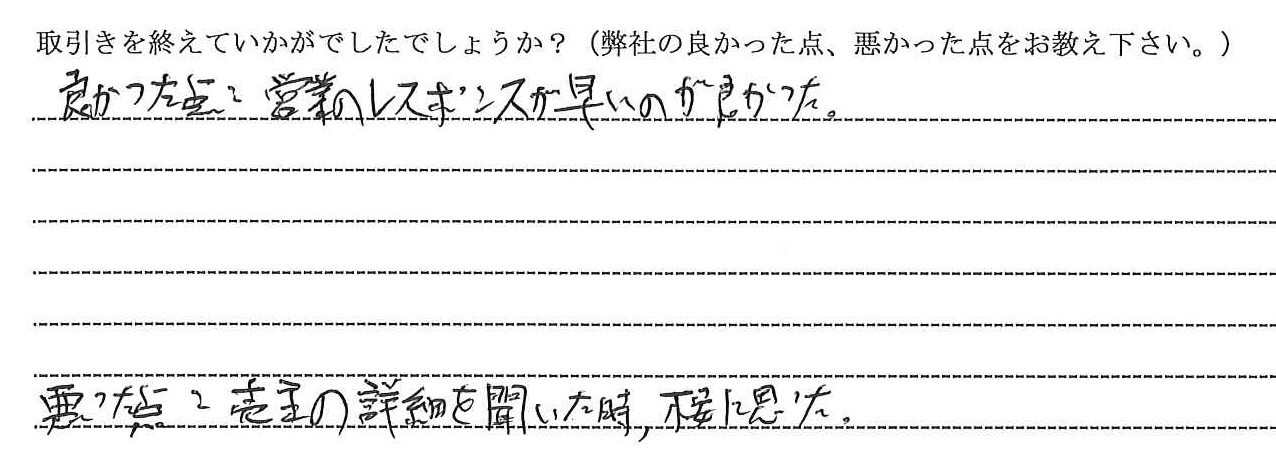 取引きを終えていかがでしたでしょうか？（弊社の良かった点、悪かった点をお教え下さい。）
良かった点: 営業のレスポンスが早いのが良かった。
悪った点: 売主の詳細を聞いた時, 不安に思った。